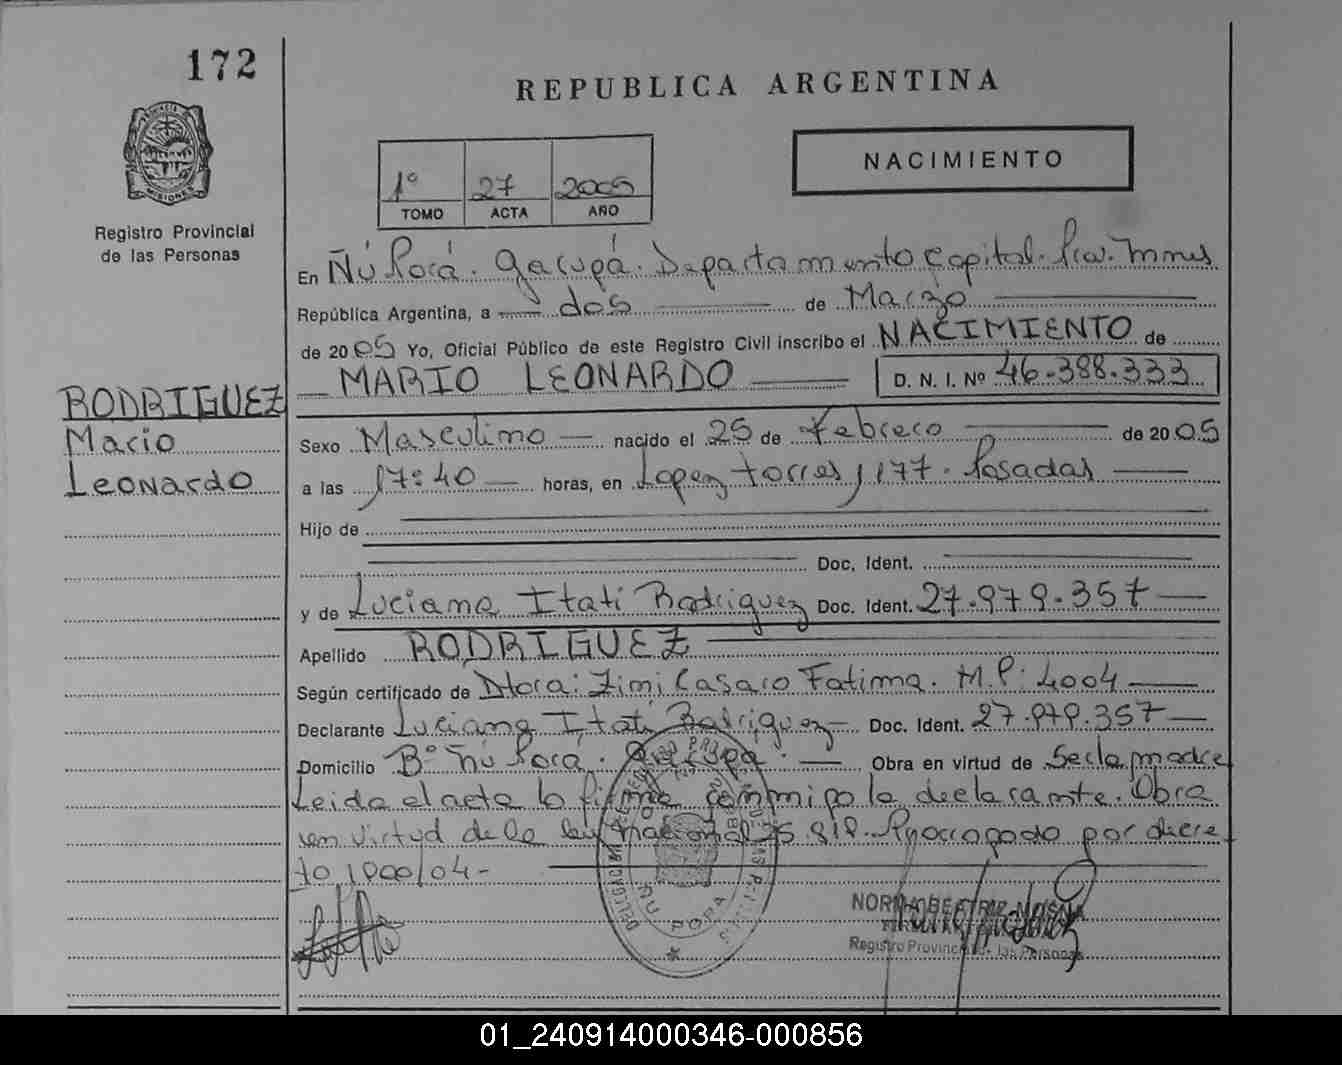 172
REPUBLICA ARGENTINA
NACIMIENTO
1º 27 2005
TOMO ACTA AÑO
Registro Provincial
de las Personas
En Ñú Porá. Garupá. Departamento Capital. Prov. Mnes
República Argentina, a dos de Marzo
de 2005 Yo, Oficial Público de este Registro Civil inscribo el NACIMIENTO de
MARIO LEONARDO D. N. I. Nº 46.388.333
RODRIGUEZ
Mario
Leonardo
Sexo Masculino nacido el 25 de Febrero de 2005
a las 17:40 horas, en Lopez Torres 1177. Posadas
Hijo de
Doc. Ident.
y de Luciana Itati Rodriguez Doc. Ident. 27.979.357
Apellido RODRIGUEZ
Según certificado de Dtora: Zimi Casaro Fatima. M.P: 4004
Declarante Luciana Itati Rodriguez Doc. Ident. 27.979.357
Domicilio Bº Ñú Porá. Garupá. Obra en virtud de Ser la madre
Leida el acta la firma conmigo la declarante. Obra
en virtud de la ley nacional 25.819. Prorrogado por decre
to 1000/04-
ÑU PORA
NORMA BEATRIZ
Registro Provincial de las Personas
01_240914000346-000856